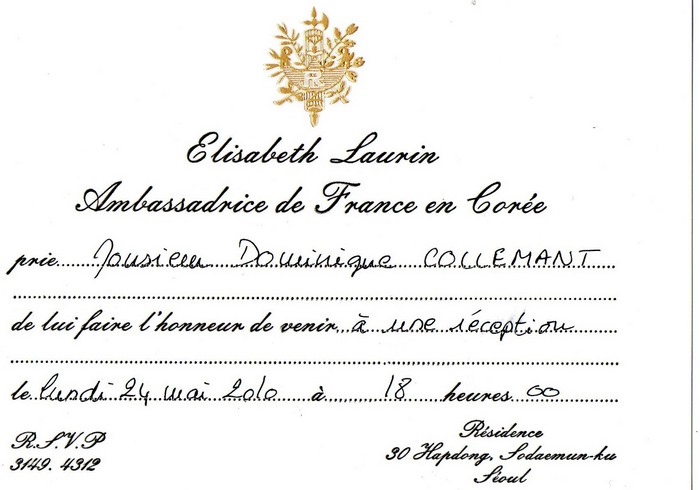 RF
Elisabeth Laurin
Ambassadrice de France en Corée
prie Monsieur Dominique COLLEMANT
de lui faire l'honneur de venir à une réception
le lundi 24 mai 2010 à 18 heures 00
R.S.V.P
3149. 4312
Résidence
30 Hapdong, Sodaemun-ku
Séoul